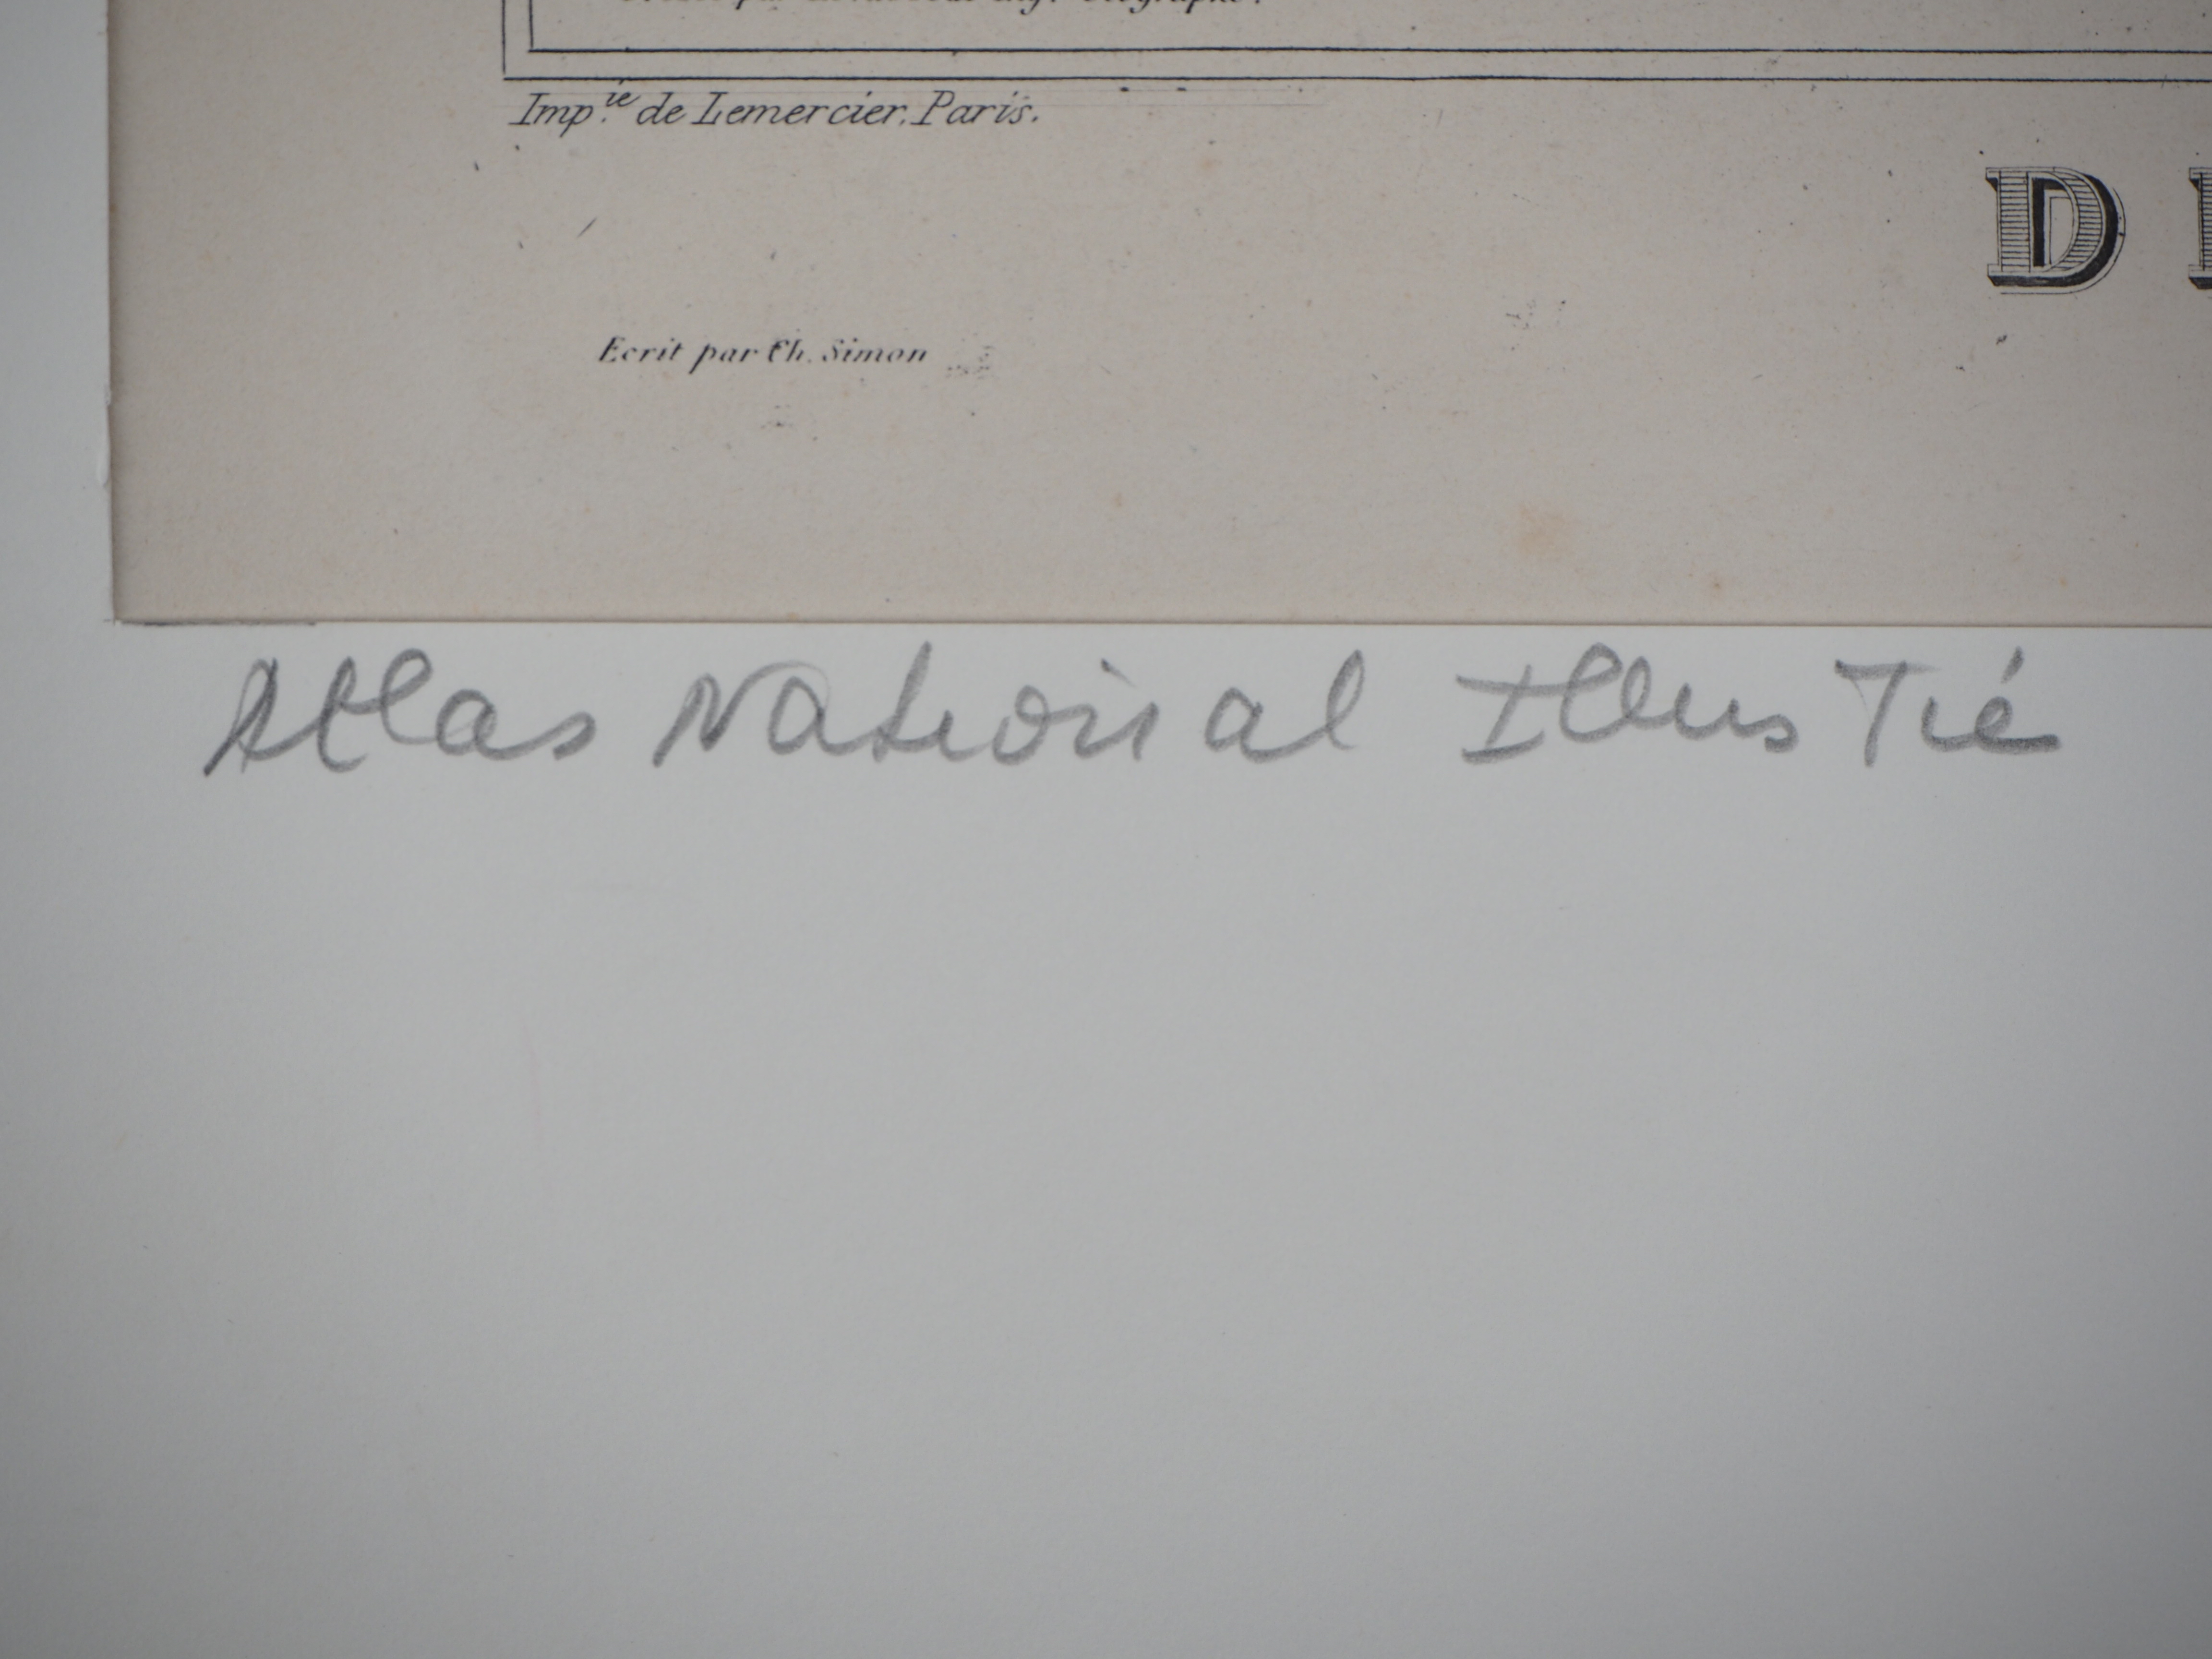 Imp.ie de Lemercier. Paris.
D
Ecrit par Ch. Simon
Atlas National Illustré